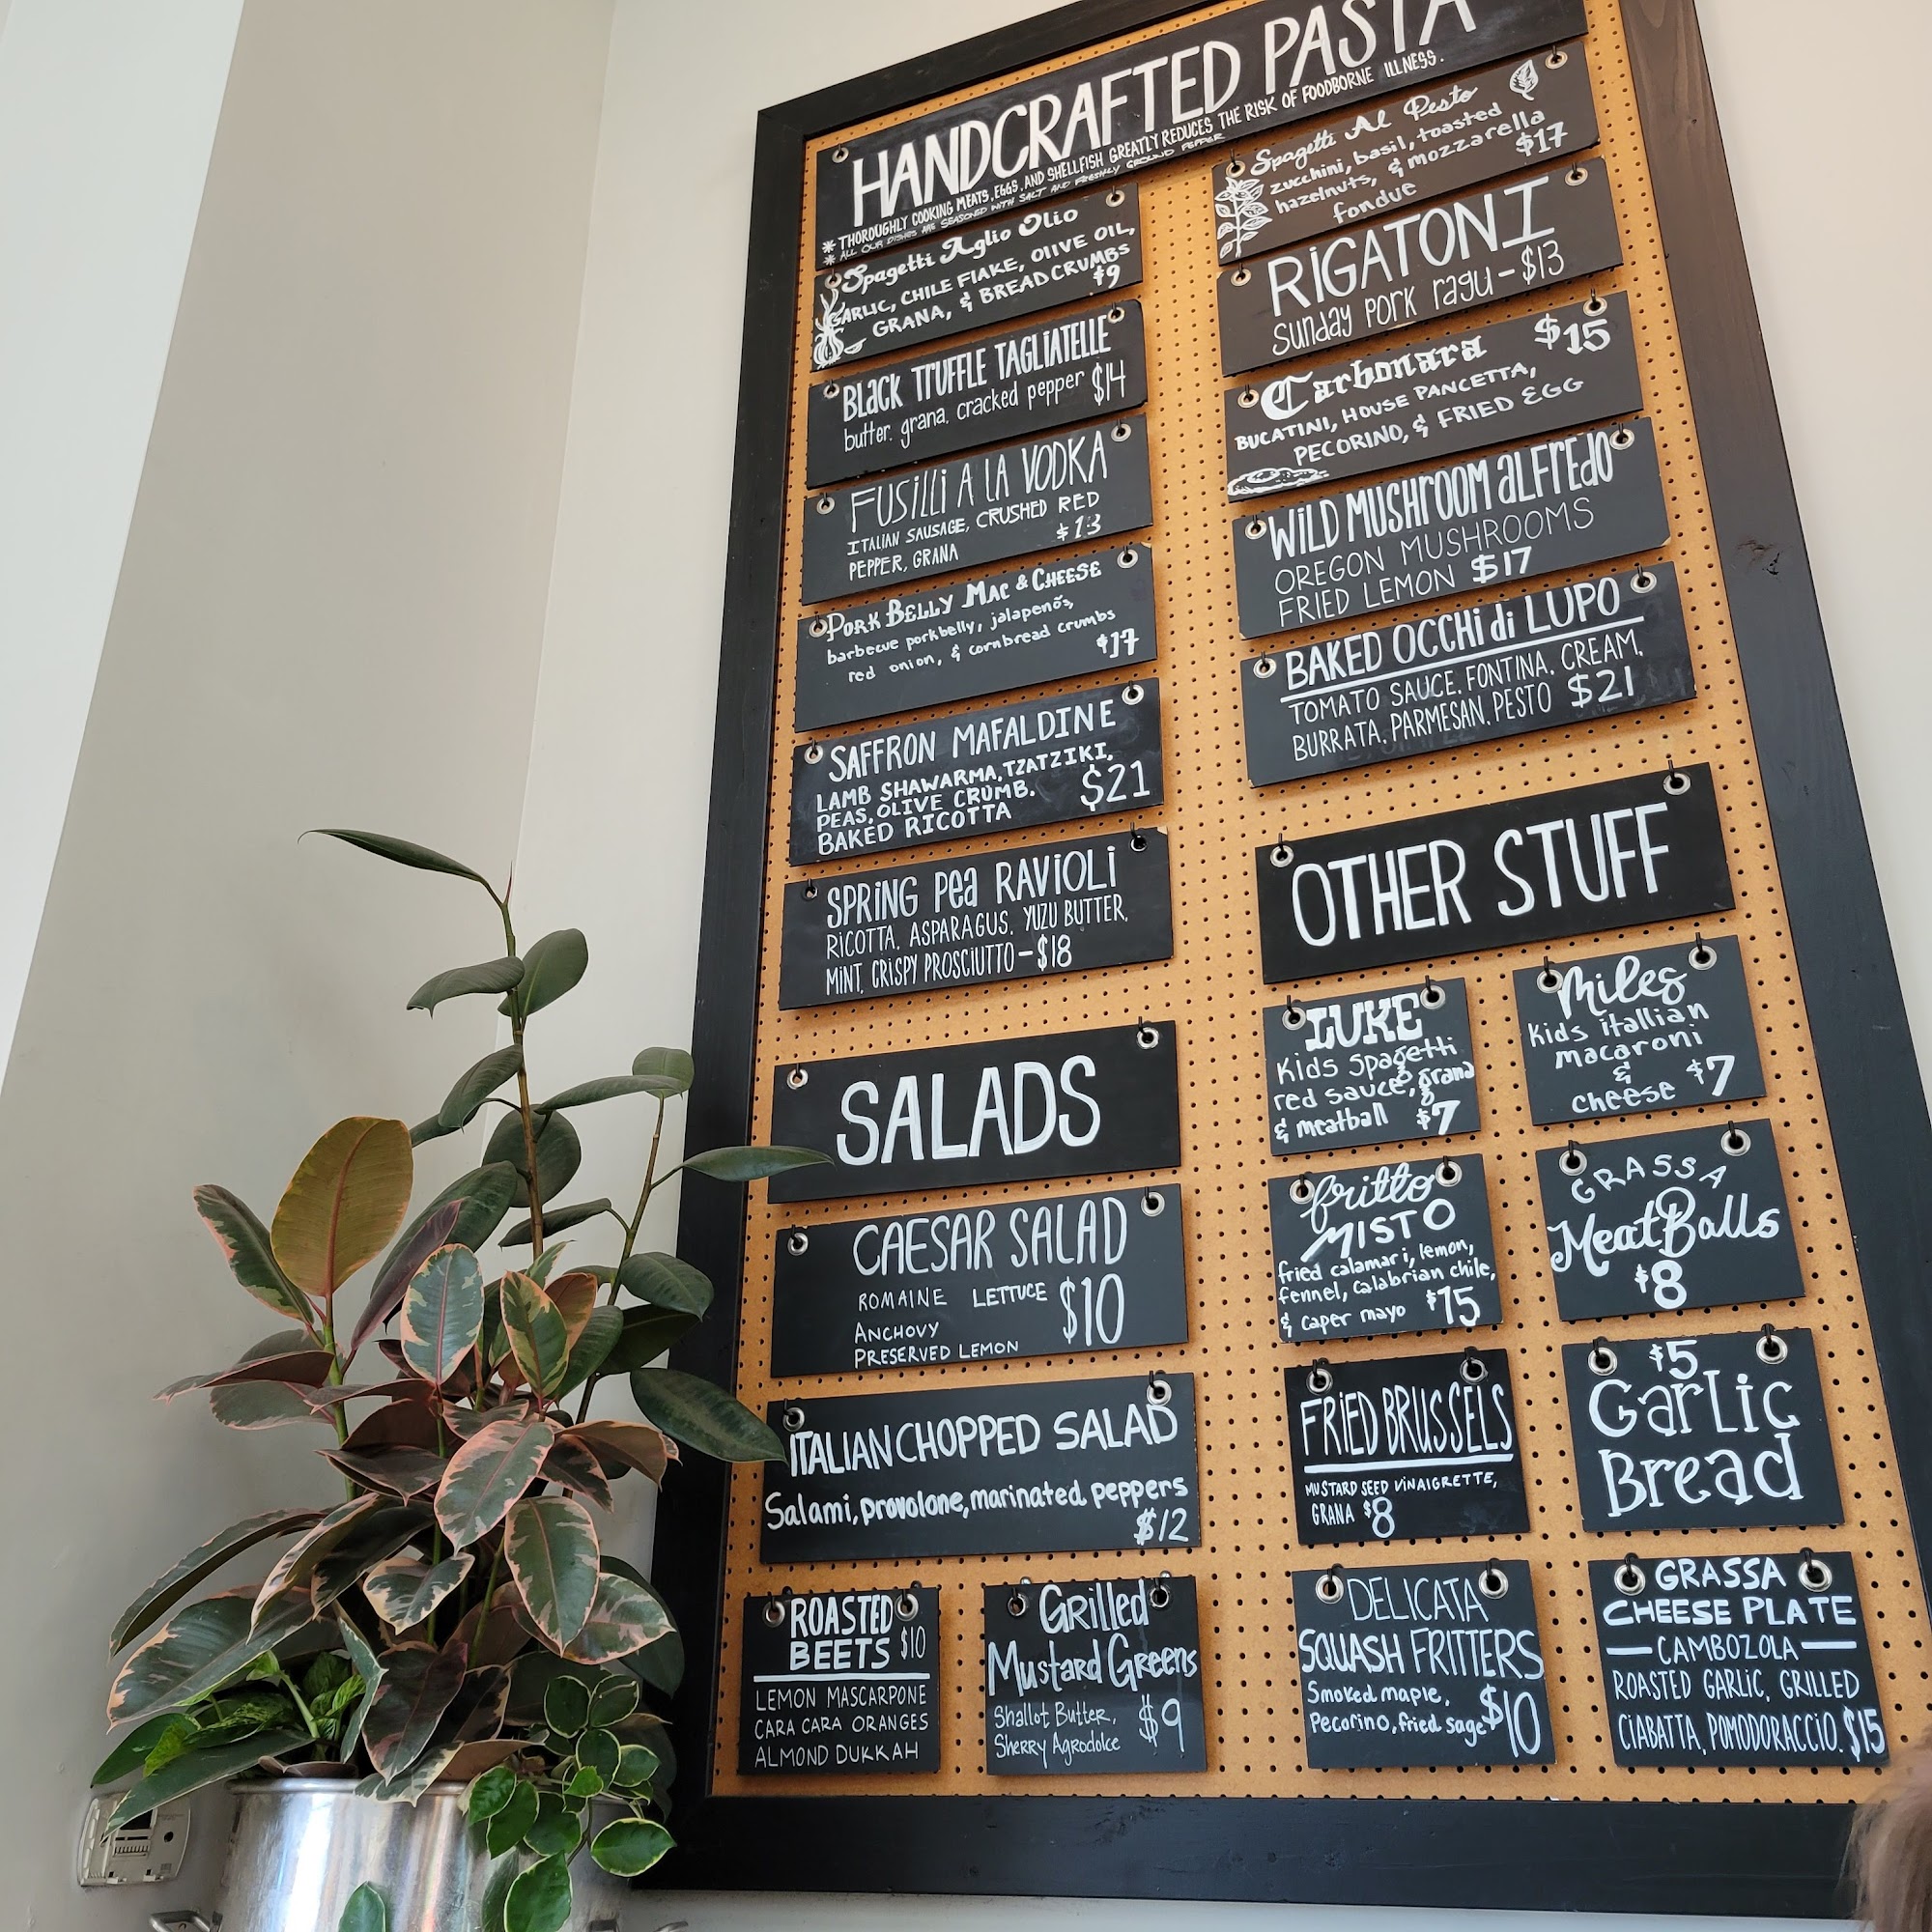 HANDCRAFTED PASTA
* THOROUGHLY COOKING MEATS, EGGS, AND SHELLFISH GREATLY REDUCES THE RISK OF FOODBORNE ILLNESS.
* ALL OUR DISHES ARE SEASONED WITH SALT AND FRESHLY GROUND PEPPER
Spagetti Aglio Olio
GARLIC, CHILE FLAKE, OLIVE OIL,
GRANA, & BREADCRUMBS
$9
BLACK TRUFFLE TAGLIATELLE
butter, grana, cracked pepper $14
FUSILLI A LA VODKA
ITALIAN SAUSAGE, CRUSHED RED
PEPPER, GRANA $13
PORK BELLY MAC & CHEESE
barbecue porkbelly, jalapenõs,
red onion, & cornbread crumbs
$17
SAFFRON MAFALDINE
LAMB SHAWARMA, TZATZIKI,
PEAS, OLIVE CRUMB,
BAKED RICOTTA $21
SPRING Pea RAVIOLI
RICOTTA, ASPARAGUS, YUZU BUTTER,
MINT, CRISPY PROSCIUTTO - $18
Spagetti Al Pesto
zucchini, basil, toasted
hazelnuts, & mozzarella
fondue $17
RIGATONI
Sunday pork ragu - $13
Carbonara $15
BUCATINI, HOUSE PANCETTA,
PECORINO, & FRIED EGG
WILD MUSHROOM ALFREDO
OREGON MUSHROOMS
FRIED LEMON $17
BAKED OCCHI di LUPO
TOMATO SAUCE, FONTINA, CREAM,
BURRATA, PARMESAN, PESTO $21
SALADS
CAESAR SALAD
ROMAINE LETTUCE
ANCHOVY
PRESERVED LEMON
$10
ITALIAN CHOPPED SALAD
Salami, provolone, marinated peppers
$12
ROASTED
BEETS $10
LEMON MASCARPONE
CARA CARA ORANGES
ALMOND DUKKAH
Grilled
Mustard Greens
Shallot Butter,
Sherry Agrodolce $9
OTHER STUFF
LUKE
Kids Spagetti
red sauce, grana
& meatball $7
Miles
kids itallian
macaroni
&
cheese $7
fritto
MISTO
fried calamari, lemon,
fennel, calabrian chile,
& caper mayo $15
GRASSA
MeatBalls
$8
FRIED BRUSSELS
MUSTARD SEED VINAIGRETTE,
GRANA $8
$5
Garlic
Bread
DELICATA
SQUASH FRITTERS
Smoked maple,
Pecorino, fried sage $10
GRASSA
CHEESE PLATE
CAMBOZOLA
ROASTED GARLIC, GRILLED
CIABATTA, POMODORACCIO. $15